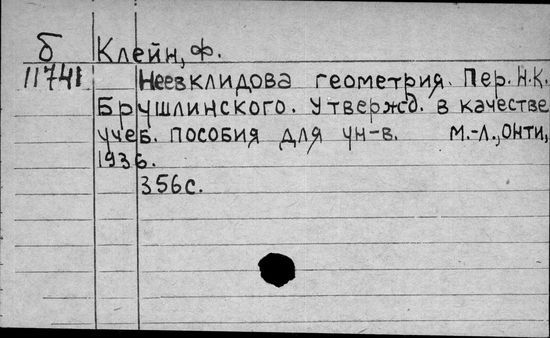 б Клейн, Ф.
11741 Неевклидова геометрия. Пер. Н.К.
Брушлинского. Утвержд. в качестве
учеб. пособия для ун-в. М.-Л., ОНТИ,
1936.
356с.